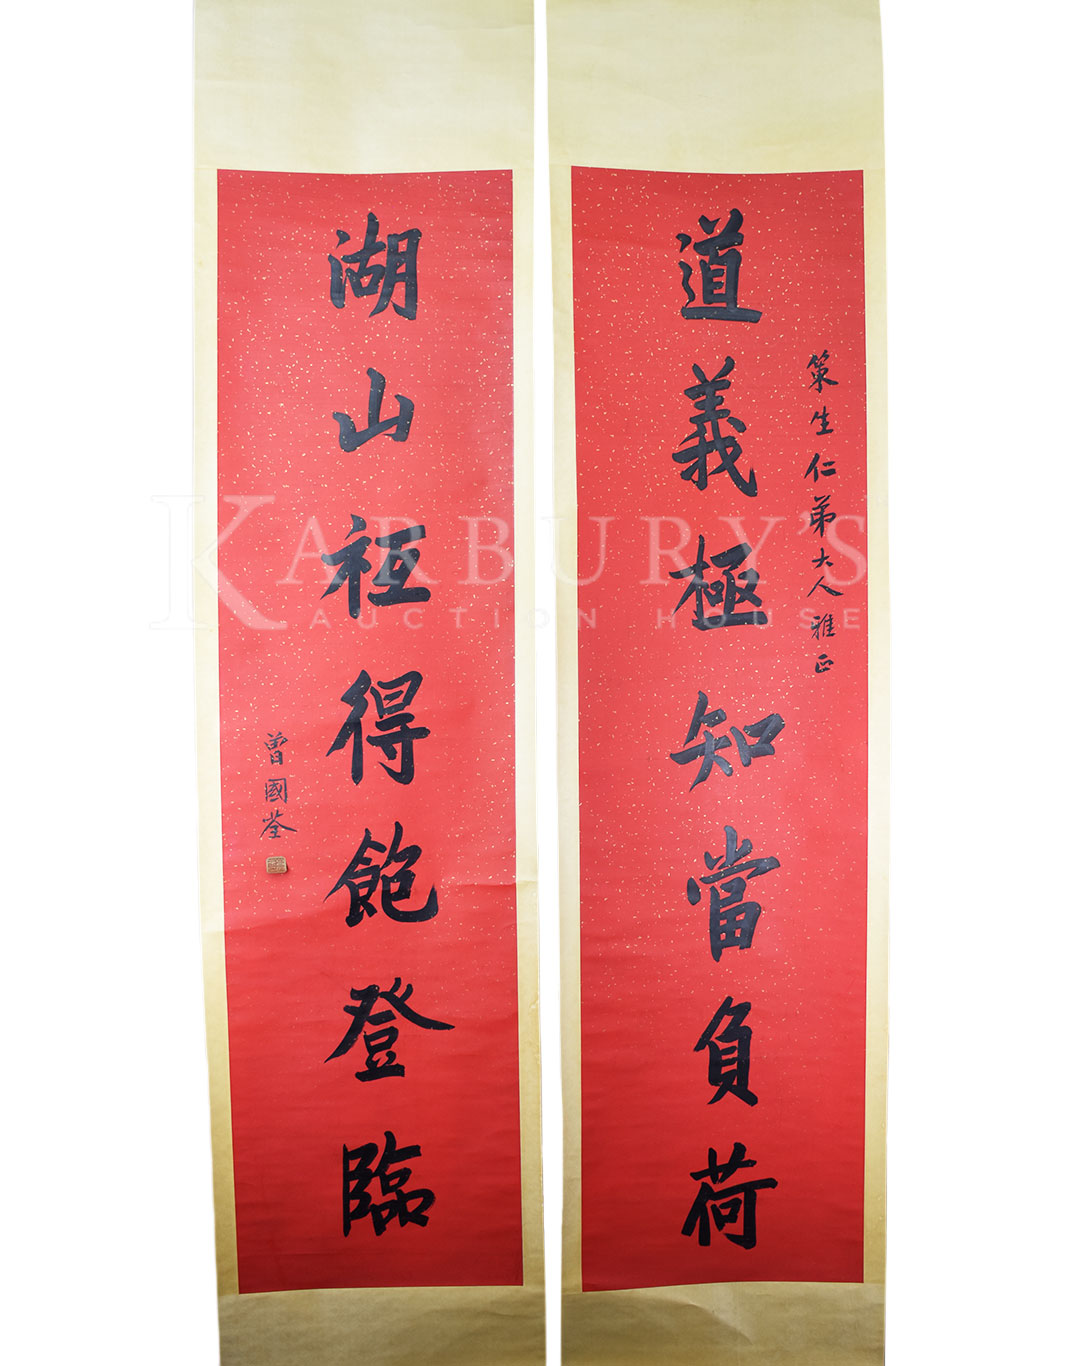 策生仁弟大人雅正
道義極知當負荷
湖山祗得飽登臨
曾國荃
KARBURY'S
AUCTION HOUSE